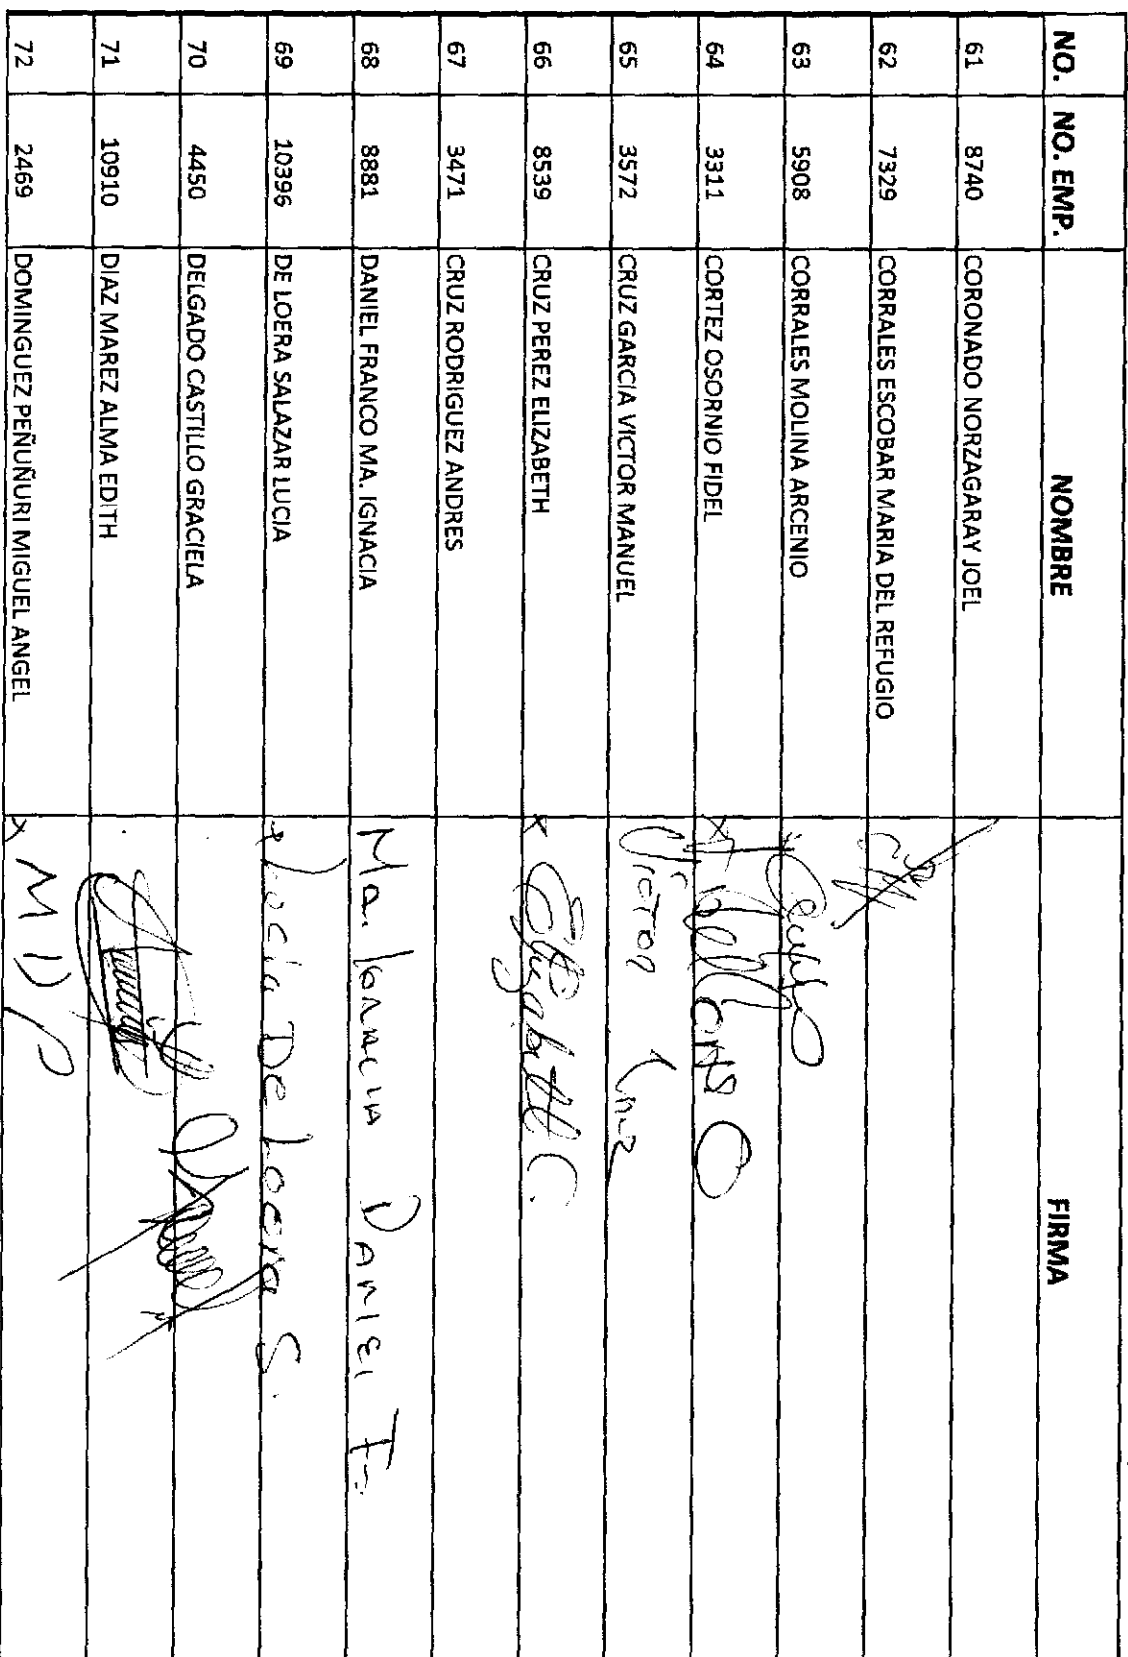 NO. NO. EMP. NOMBRE FIRMA
61 8740 CORONADO NORZAGARAY JOEL
62 7329 CORRALES ESCOBAR MARIA DEL REFUGIO
63 5908 CORRALES MOLINA ARCENIO
64 3311 CORTEZ OSORNIO FIDEL
65 3572 CRUZ GARCIA VICTOR MANUEL Victor Cruz
66 8539 CRUZ PEREZ ELIZABETH x Elizabeth C.
67 3471 CRUZ RODRIGUEZ ANDRES
68 8881 DANIEL FRANCO MA. IGNACIA Ma. Ignacia Daniel F.
69 10396 DE LOERA SALAZAR LUCIA Lucia De Loera S.
70 4450 DELGADO CASTILLO GRACIELA
71 10910 DIAZ MAREZ ALMA EDITH
72 2469 DOMINGUEZ PEÑUÑURI MIGUEL ANGEL x M D P